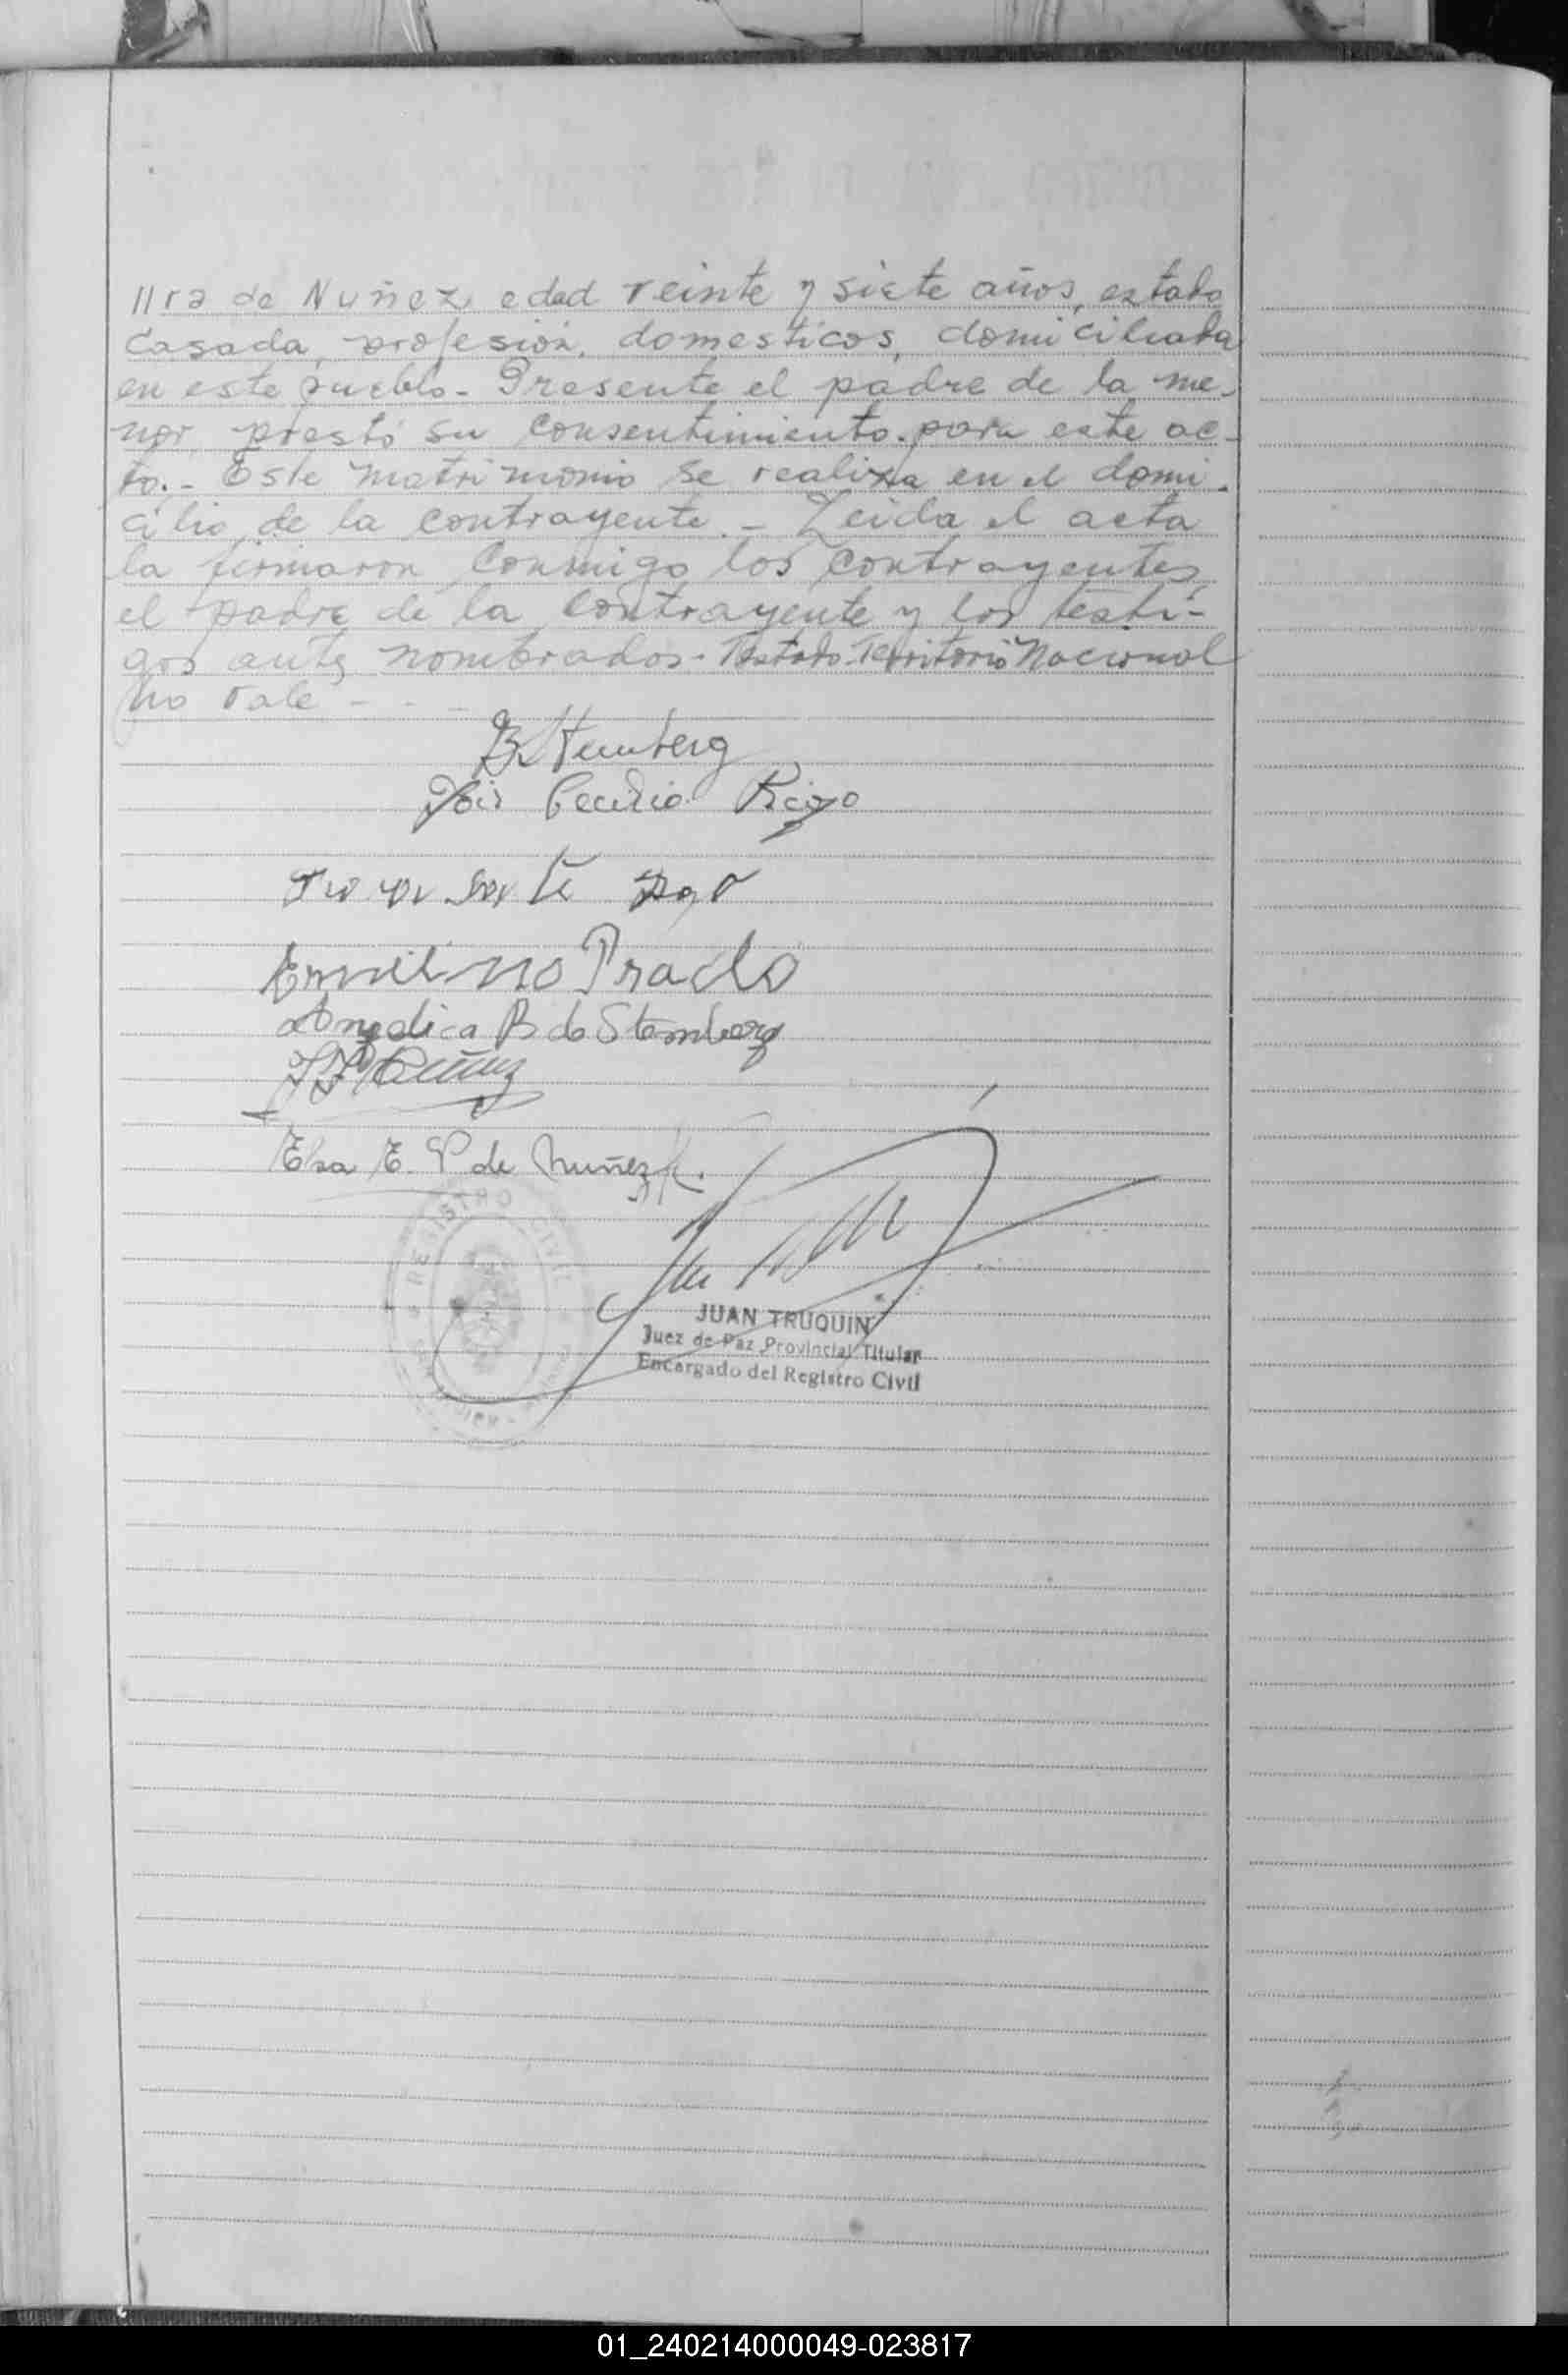 llra de Nuñez, edad veinte y siete años, estado
casada, profesión, domesticos, domiciliada
en este pueblo.- Presente el padre de la me-
nor, prestó su consentimiento para este ac-
to.- Este matrimonio se realiza en el domi-
cilio de la contrayente.- Leida el acta
la firmaron conmigo los contrayentes,
el padre de la contrayente y los testi-
gos antes nombrados.- Testado Territorio Nacional
no vale - - -
B. Stemberg
Cecilia Rizo
Ermilino Prado
Angelica B de Stemberg
Nuñez
Elsa E. P de Nuñez
REGISTRO CIVIL
JUAN TRUQUIN
Juez de Paz Provincial Titular
Encargado del Registro Civil
01_240214000049-023817